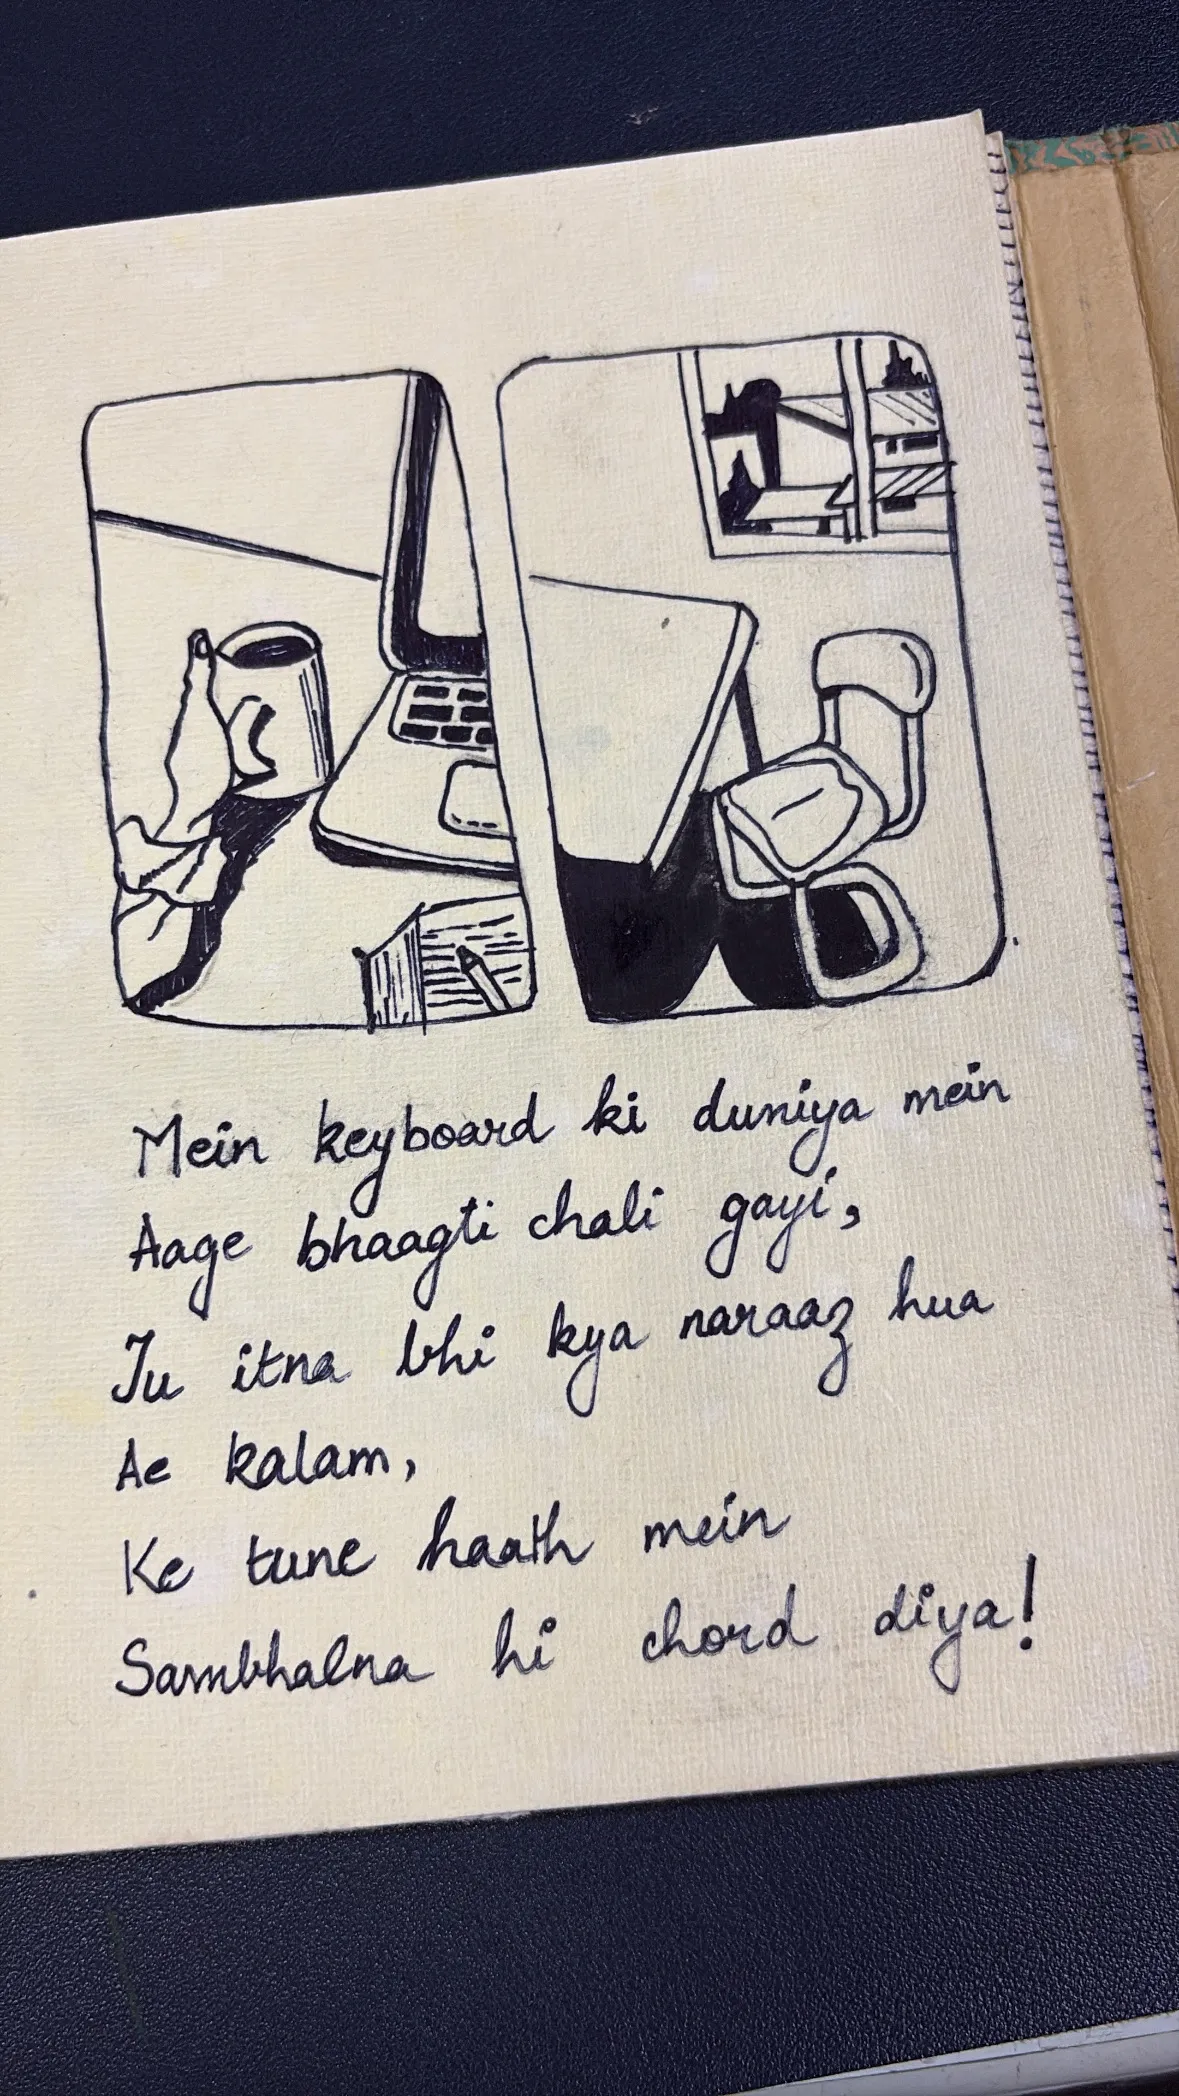 Mein keyboard ki duniya mein
Aage bhaagti chali gayi,
Tu itna bhi kya naraaz hua
Ae kalam,
Ke tune haath mein
Sambhalna hi chord diya!